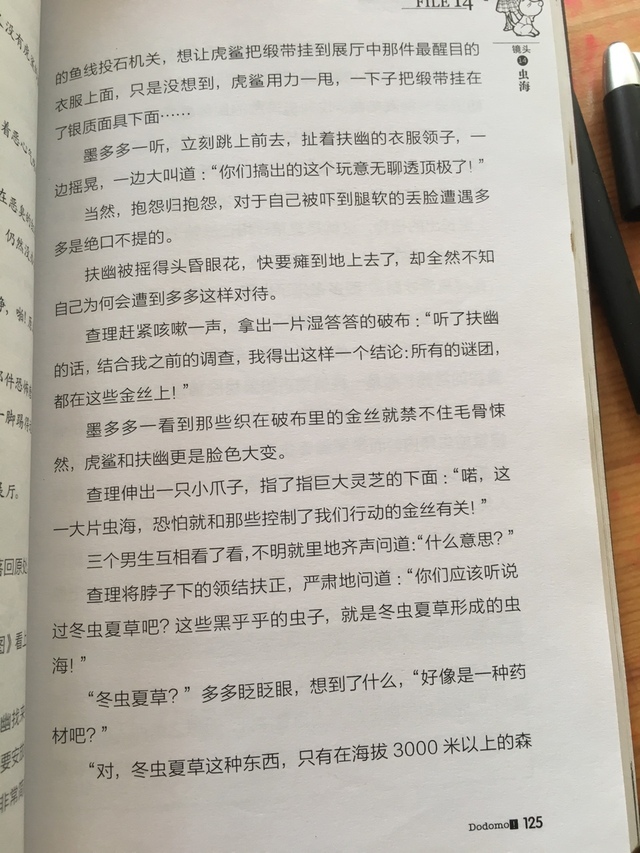 FILE 14
镜头
14
虫海
的鱼线投石机关，想让虎鲨把缎带挂到展厅中那件最醒目的
衣服上面，只是没想到，虎鲨用力一甩，一下子把缎带挂在
了银质面具下面……
墨多多一听，立刻跳上前去，扯着扶幽的衣服领子，一
边摇晃，一边大叫道：“你们搞出的这个玩意无聊透顶极了！”
当然，抱怨归抱怨，对于自己被吓到腿软的丢脸遭遇多
多是绝口不提的。
扶幽被摇得头昏眼花，快要瘫到地上去了，却全然不知
自己为何会遭到多多这样对待。
查理赶紧咳嗽一声，拿出一片湿答答的破布：“听了扶幽
的话，结合我之前的调查，我得出这样一个结论：所有的谜团，
都在这些金丝上！”
墨多多一看到那些织在破布里的金丝就禁不住毛骨悚
然，虎鲨和扶幽更是脸色大变。
查理伸出一只小爪子，指了指巨大灵芝的下面：“喏，这
一大片虫海，恐怕就和那些控制了我们行动的金丝有关！”
三个男生互相看了看，不明就里地齐声问道：“什么意思？”
查理将脖子下的领结扶正，严肃地问道：“你们应该听说
过冬虫夏草吧？这些黑乎乎的虫子，就是冬虫夏草形成的虫
海！”
“冬虫夏草？”多多眨眨眼，想到了什么，“好像是一种药
材吧？”
“对，冬虫夏草这种东西，只有在海拔 3000 米以上的森
Dodomo 125